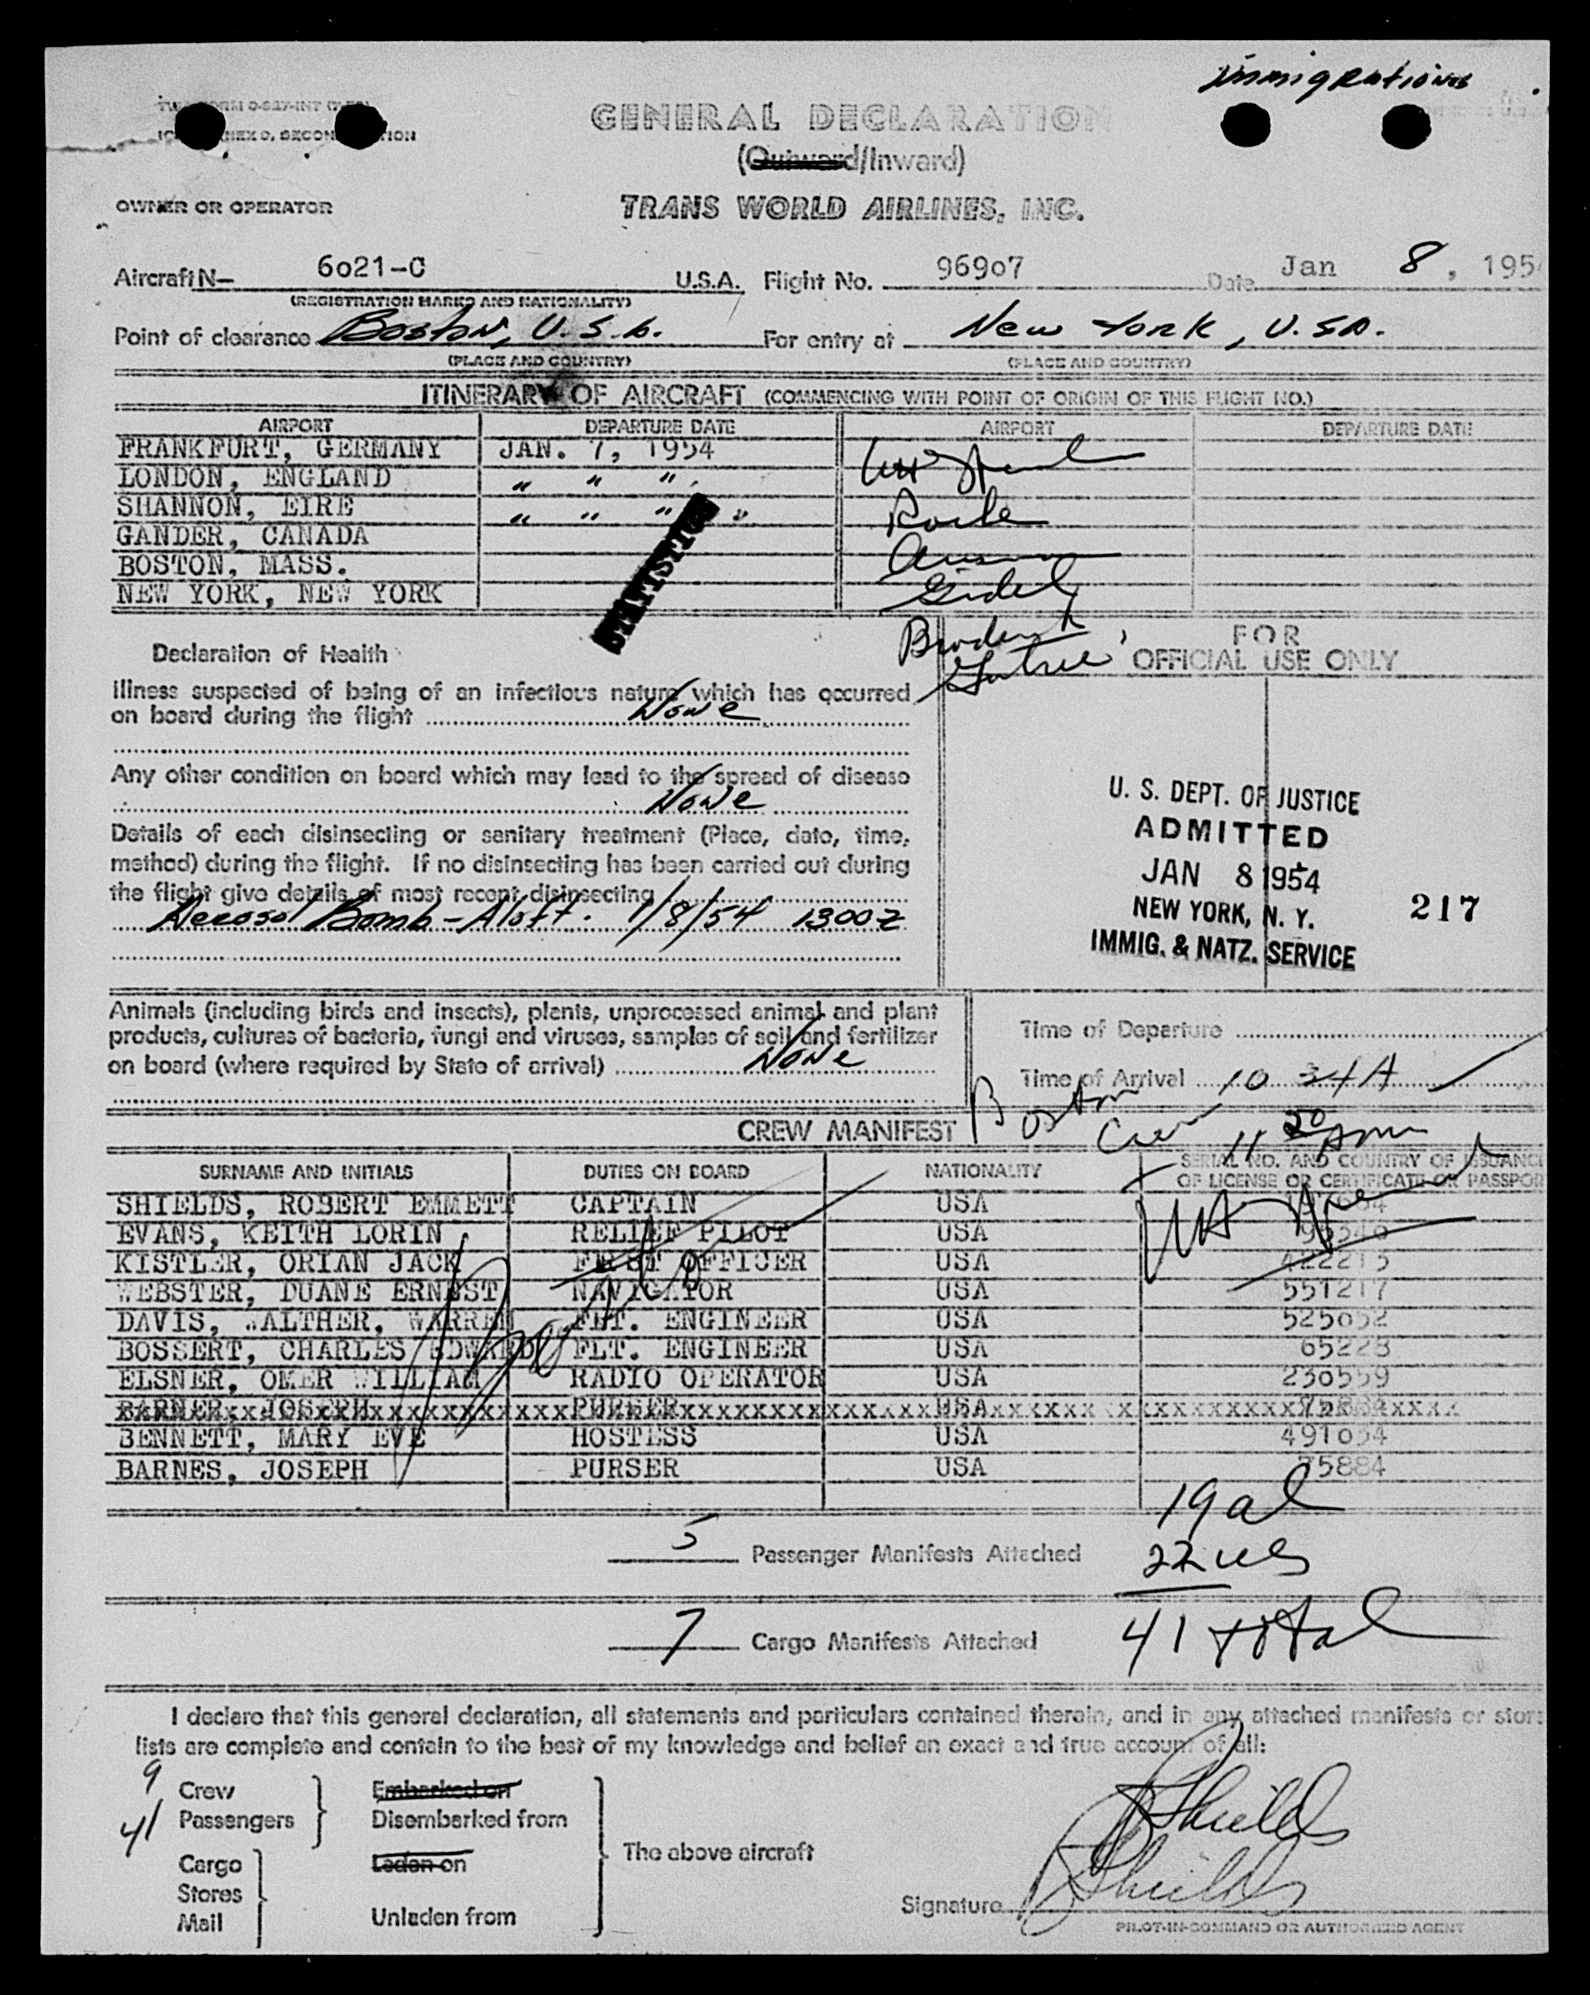 immigrations
GENERAL DECLARATION
(Outward/Inward)
OWNER OR OPERATOR TRANS WORLD AIRLINES, INC.
Aircraft N- 6021-C U.S.A. Flight No. 96907 Date Jan 8, 195
(REGISTRATION MARKS AND NATIONALITY)
Point of clearance Boston, U.S.A. For entry at New York, U.S.A.
(PLACE AND COUNTRY) (PLACE AND COUNTRY)
ITINERARY OF AIRCRAFT (COMMENCING WITH POINT OF ORIGIN OF THIS FLIGHT NO.)
AIRPORT DEPARTURE DATE AIRPORT DEPARTURE DATE
FRANKFURT, GERMANY JAN. 7, 1954
LONDON, ENGLAND " " "
SHANNON, EIRE " " " "
GANDER, CANADA
BOSTON, MASS.
NEW YORK, NEW YORK
Declaration of Health
FOR
OFFICIAL USE ONLY
Illness suspected of being of an infectious nature which has occurred
on board during the flight None
Any other condition on board which may lead to the spread of disease
None
Details of each disinsecting or sanitary treatment (Place, date, time,
method) during the flight. If no disinsecting has been carried out during
the flight give details of most recent disinsecting
Aerosol Bomb-Aloft. 1/8/54 1300Z
U. S. DEPT. OF JUSTICE
ADMITTED
JAN 8 1954
NEW YORK, N. Y. 217
IMMIG. & NATZ. SERVICE
Animals (including birds and insects), plants, unprocessed animal and plant
products, cultures of bacteria, fungi and viruses, samples of soil and fertilizer
on board (where required by State of arrival) None
Time of Departure
Time of Arrival 10 34A
Boston Crew 11 20 Am
CREW MANIFEST
SURNAME AND INITIALS DUTIES ON BOARD NATIONALITY SERIAL NO. AND COUNTRY OF ISSUANC
OF LICENSE OR CERTIFICATE OR PASSPOR
SHIELDS, ROBERT EMMETT CAPTAIN USA
EVANS, KEITH LORIN RELIEF PILOT USA
KISTLER, ORIAN JACK FIRST OFFICER USA 422215
WEBSTER, DUANE ERNEST NAVIGATOR USA 551217
DAVIS, WALTHER, WARREN FLT. ENGINEER USA 525052
BOSSERT, CHARLES EDWARD FLT. ENGINEER USA 65228
ELSNER, OMER WILLIAM RADIO OPERATOR USA 230559
BARNER, JOSEPH PURSER USA
BENNETT, MARY EVE HOSTESS USA 491054
BARNES, JOSEPH PURSER USA 75884
19 al
5 Passenger Manifests Attached
22 us
7 Cargo Manifests Attached
41 total
I declare that this general declaration, all statements and particulars contained therein, and in any attached manifests or store
lists are complete and contain to the best of my knowledge and belief an exact and true account of all:
9 Crew Embarked on
41 Passengers Disembarked from
The above aircraft
Cargo Laden on
Stores
Mail Unladen from
R Shields
Signature R Shields
PILOT-IN-COMMAND OR AUTHORIZED AGENT